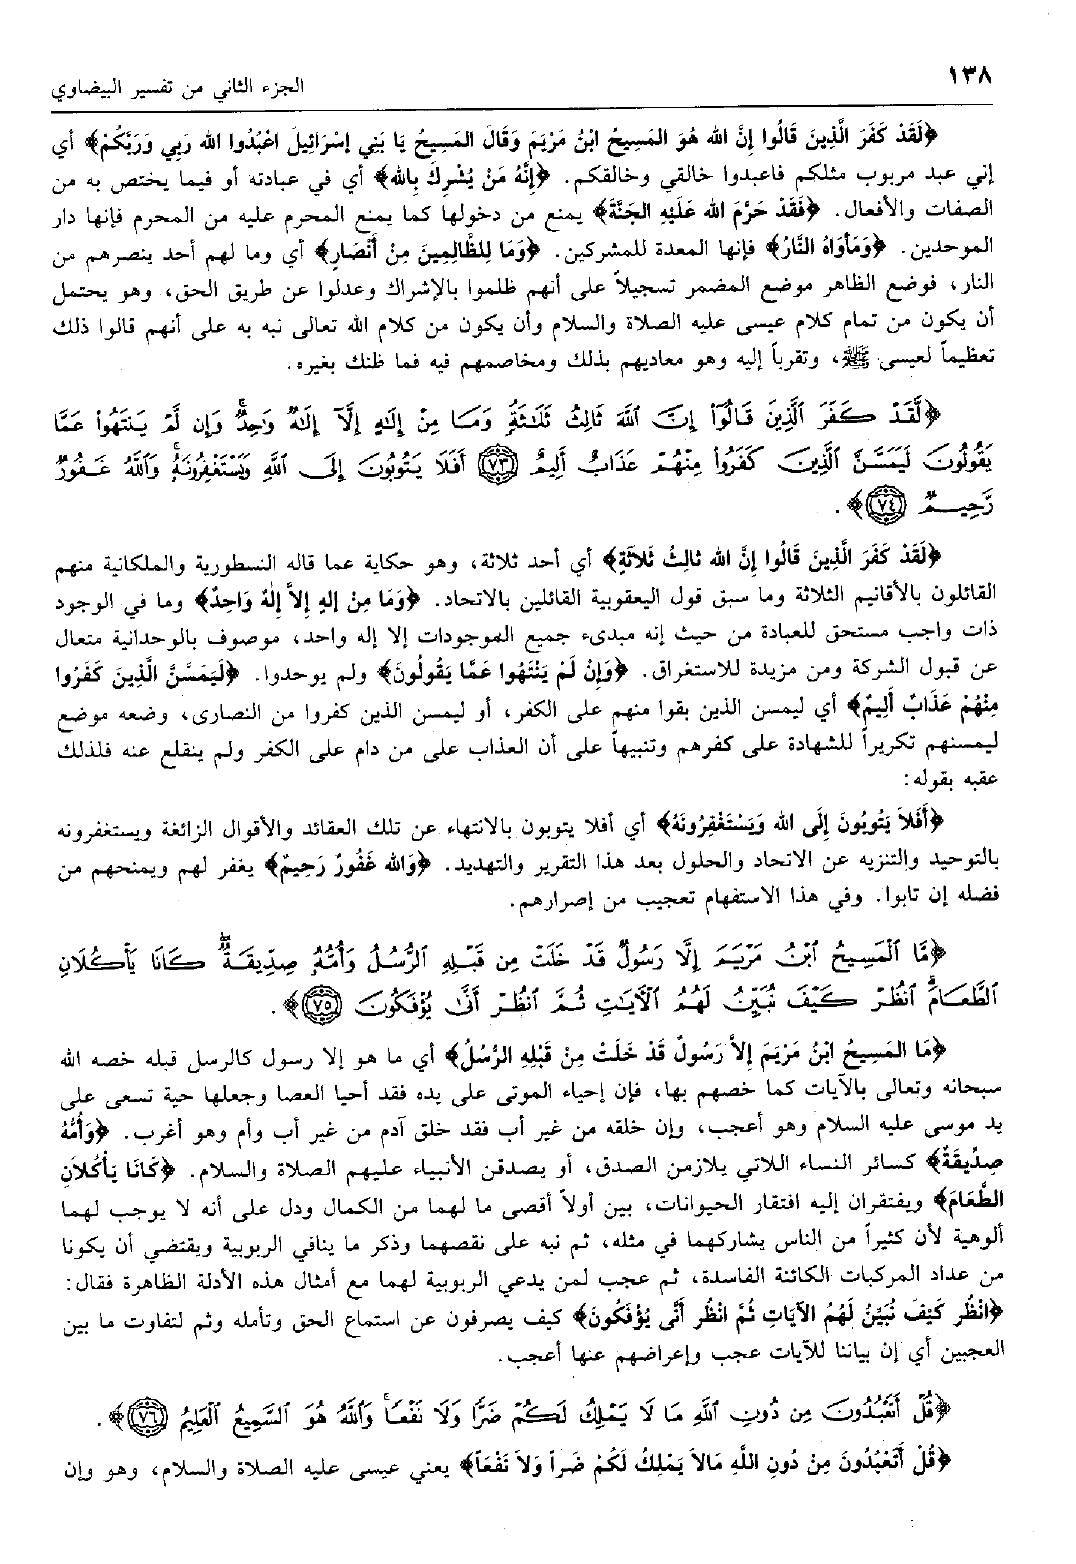 ١٣٨
الجزء الثاني من تفسير البيضاوي
﴿لَقَدْ كَفَرَ الَّذِينَ قَالُوا إِنَّ الله هُوَ المَسِيحُ ابْنُ مَرْيَمَ وَقَالَ المَسِيحُ يَا بَنِي إِسْرَائِيلَ اعْبُدُوا الله رَبِي وَرَبَّكُمْ﴾ أي
إني عبد مربوب مثلكم فاعبدوا خالقي وخالقكم. ﴿إِنَّهُ مَنْ يُشْرِكَ بِالله﴾ أي في عبادته أو فيما يختص به من
الصفات والأفعال. ﴿فَقَدْ حَرَّمَ الله عَلَيْهِ الجَنَّةَ﴾ يمنع من دخولها كما يمنع المحرم عليه من المحرم فإنها دار
الموحدين. ﴿وَمَأوَاهُ النَّارُ﴾ فإنها المعدة للمشركين. ﴿وَمَا لِلظَّالِمِينَ مِنْ أَنْصَارٍ﴾ أي وما لهم أحد ينصرهم من
النار، فوضع الظاهر موضع المضمر تسجيلاً على أنهم ظلموا بالإشراك وعدلوا عن طريق الحق، وهو يحتمل
أن يكون من تمام كلام عيسى عليه الصلاة والسلام وأن يكون من كلام الله تعالى نبه به على أنهم قالوا ذلك
تعظيماً لعيسى ﷺ، وتقرباً إليه وهو معاديهم بذلك ومخاصمهم فيه فما ظنك بغيره.
﴿لَّقَدْ كَفَرَ الَّذِينَ قَالُوٓا۟ إِنَّ اللَّهَ ثَالِثُ ثَلَاثَةٍۘ وَمَا مِنْ إِلَٰهٍ إِلَّآ إِلَٰهٌ وَاحِدٌۚ وَإِن لَّمْ يَنتَهُوا۟ عَمَّا
يَقُولُونَ لَيَمَسَّنَّ الَّذِينَ كَفَرُوا۟ مِنْهُمْ عَذَابٌ أَلِيمٌ ﴿٧٣﴾ أَفَلَا يَتُوبُونَ إِلَى اللَّهِ وَيَسْتَغْفِرُونَهُۥۚ وَاللَّهُ غَفُورٌ
رَّحِيمٌ ﴿٧٤﴾﴾.
﴿لَقَدْ كَفَرَ الَّذِينَ قَالُوا إِنَّ الله ثَالِثُ ثَلاَثَةٍ﴾ أي أحد ثلاثة، وهو حكاية عما قاله النسطورية والملكانية منهم
القائلون بالأقانيم الثلاثة وما سبق قول اليعقوبية القائلين بالاتحاد. ﴿وَمَا مِنْ إِلهٍ إِلاَّ إِلهٌ وَاحِدٌ﴾ وما في الوجود
ذات واجب مستحق للعبادة من حيث إنه مبدىء جميع الموجودات إلا إله واحد، موصوف بالوحدانية متعال
عن قبول الشركة ومن مزيدة للاستغراق. ﴿وَإِن لَمْ يَنْتَهُوا عَمَّا يَقُولُونَ﴾ ولم يوحدوا. ﴿لَيَمَسَّنَّ الَّذِينَ كَفَرُوا
مِنْهُمْ عَذَابٌ أَلِيمٌ﴾ أي ليمسن الذين بقوا منهم على الكفر، أو ليمسن الذين كفروا من النصارى، وضعه موضع
ليمسنهم تكريراً للشهادة على كفرهم وتنبيهاً على أن العذاب على من دام على الكفر ولم ينقلع عنه فلذلك
عقبه بقوله:
﴿أَفَلاَ يَتُوبُونَ إِلَى الله وَيَسْتَغْفِرُونَهُ﴾ أي أفلا يتوبون بالانتهاء عن تلك العقائد والأقوال الزائغة ويستغفرونه
بالتوحيد والتنزيه عن الاتحاد والحلول بعد هذا التقرير والتهديد. ﴿وَالله غَفُورٌ رَحِيمٌ﴾ يغفر لهم ويمنحهم من
فضله إن تابوا. وفي هذا الاستفهام تعجيب من إصرارهم.
﴿مَّا الْمَسِيحُ ابْنُ مَرْيَمَ إِلَّا رَسُولٌ قَدْ خَلَتْ مِن قَبْلِهِ الرُّسُلُ وَأُمُّهُۥ صِدِّيقَةٌۖ كَانَا يَأْكُلَانِ
الطَّعَامَۗ انظُرْ كَيْفَ نُبَيِّنُ لَهُمُ الْآيَاتِ ثُمَّ انظُرْ أَنَّىٰ يُؤْفَكُونَ ﴿٧٥﴾﴾.
﴿مَا المَسِيحُ ابْنُ مَرْيَمَ إِلاَّ رَسُولٌ قَدْ خَلَتْ مِنْ قَبْلِهِ الرُّسُلُ﴾ أي ما هو إلا رسول كالرسل قبله خصه الله
سبحانه وتعالى بالآيات كما خصهم بها، فإن إحياء الموتى على يده فقد أحيا العصا وجعلها حية تسعى على
يد موسى عليه السلام وهو أعجب، وإن خلقه من غير أب فقد خلق آدم من غير أب وأم وهو أغرب. ﴿وَأُمُّهُ
صِدِّيقَةٌ﴾ كسائر النساء اللاتي يلازمن الصدق، أو يصدقن الأنبياء عليهم الصلاة والسلام. ﴿كَانَا يَأْكُلاَنِ
الطَّعَامَ﴾ ويفتقران إليه افتقار الحيوانات، بين أولاً أقصى ما لهما من الكمال ودل على أنه لا يوجب لهما
ألوهية لأن كثيراً من الناس يشاركهما في مثله، ثم نبه على نقصهما وذكر ما ينافي الربوبية ويقتضي أن يكونا
من عداد المركبات الكائنة الفاسدة، ثم عجب لمن يدعي الربوبية لهما مع أمثال هذه الأدلة الظاهرة فقال:
﴿انْظُر كَيْفَ نُبَيِّنُ لَهُمُ الآيَاتِ ثُمَّ انْظُر أَنَّى يُؤْفَكُونَ﴾ كيف يصرفون عن استماع الحق وتأمله وثم لتفاوت ما بين
العجبين أي إن بياننا للآيات عجب وإعراضهم عنها أعجب.
﴿قُلْ أَتَعْبُدُونَ مِن دُونِ اللَّهِ مَا لَا يَمْلِكُ لَكُمْ ضَرًّا وَلَا نَفْعًاۚ وَاللَّهُ هُوَ السَّمِيعُ الْعَلِيمُ ﴿٧٦﴾﴾.
﴿قُلْ أَتَعْبُدُونَ مِنْ دُونِ اللَّهِ مَالاَ يَمْلِكُ لَكُمْ ضَراً وَلاَ نَفْعَاً﴾ يعني عيسى عليه الصلاة والسلام، وهو وإن